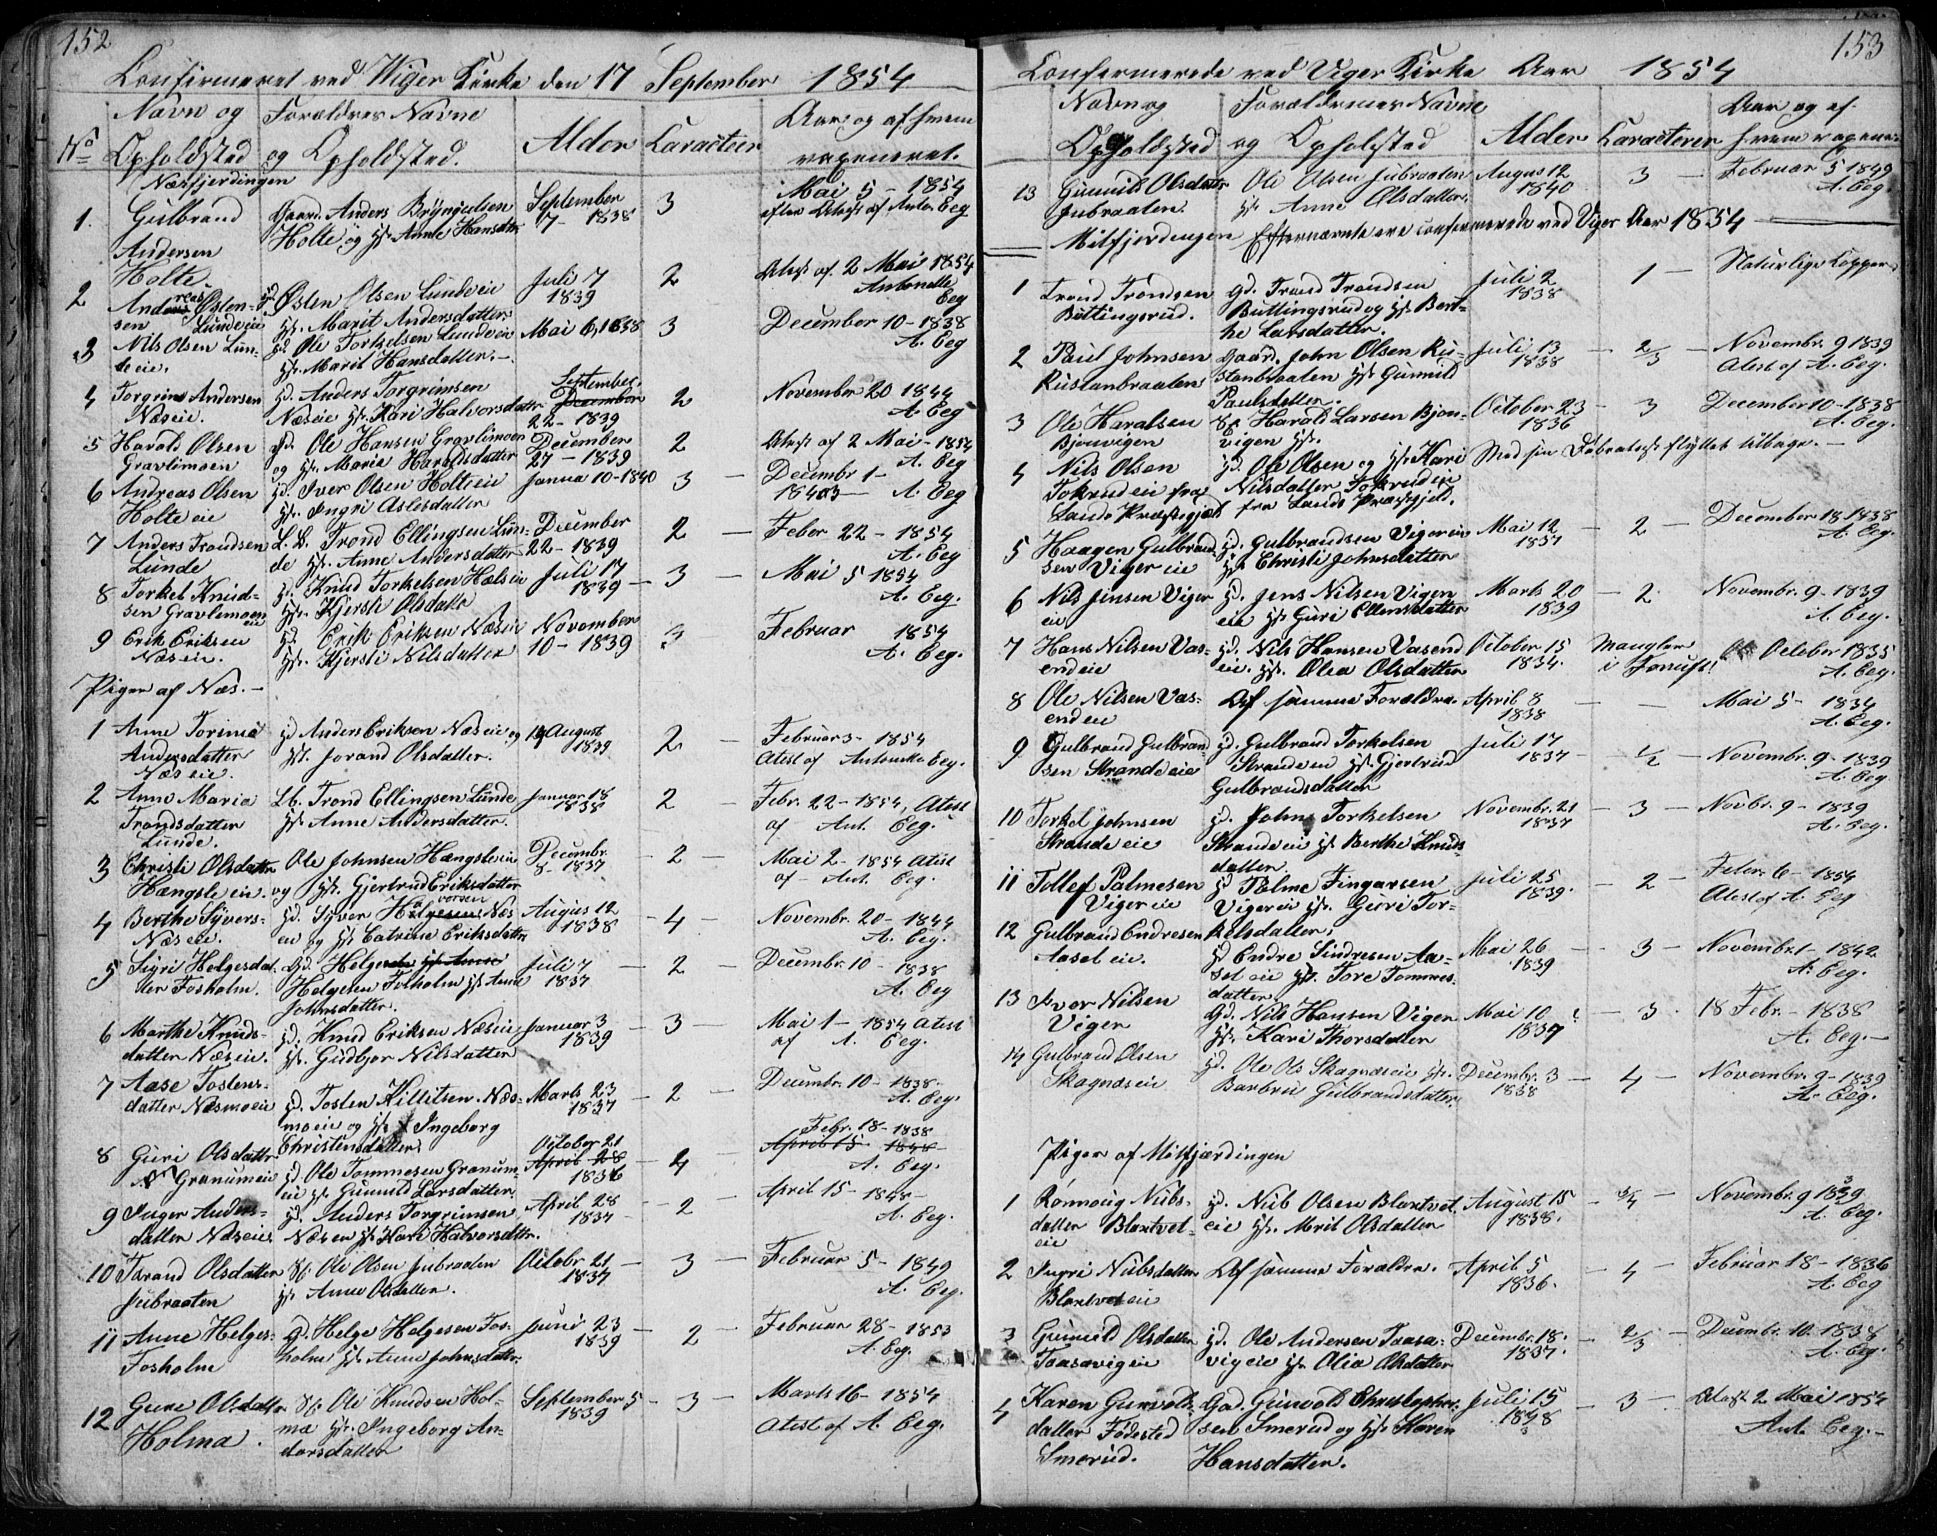 152
Confirmeret ved Wiger Kirke den 17 September 1854
No
Navn og Opholdsted
Forældres Navne og Opholdsted.
Alder
Caracteer
Aar og af hvem vaxeneret.
Næsfjerdingen
1. Gulbrand Andersen Holte
Gaard. Anders Bryngelsen Holte og H. Anne Hansdtr
September 17 - 1838
3
Mai 5 - 1854 efter Atest af Anton Eeg
2 Andreas Østensen Lundeeie
Østen Olsen Lundeeie H. Marit Andersdatter
Juli 7 1839
2
Atest af 2 Mai 1854 Antonette Eeg
3 Nils Olsen Lundeeie.
Ole Torkelsen Lundeeie H. Marit Hansdatter. -
Mai 6, 1838
3
December 10 - 1838 A. Eeg
4 Torgrim Andersen Næseie.
Anders Torgrimsen Næseie H. Kari Halvorsdatter
September 22 - 1839
2
November 20 1844 A. Eeg
5 Harald Olsen Gravlimoen
Ole Hansen Gravlimoen og H. Maria Haraldsdatter
December 27 - 1839
2
Atest af 2 Mai - 1854 A. Eeg
6 Andreas Olsen Holte eie
Iver Olsen Holteeie H. Ingri Aslesdatter
Janua 10 - 1840
3
Decembr 1 - A. Eeg
7 Anders Trondsen Lunde
L. B. Trond Ellingsen Lunde H. Anne Andersdatter
December 22 - 1839
2
Feber 22 - 1854 A. Eeg
8 Torkel Knudsen Gravlimoen eie
Knud Torkelsen H. Kjersti Olsdatte
Juli 17 1839
3
Mai 5 1854 A. Eeg.
9 Erik Eriksen Næseie.
Erik Eriksen Næseie H. Kjersti Nilsdatter
November 10 - 1839
3
Februar 1854 A. Eeg.
Piger af Næs. -
1 Anne Andersdatter Næseie.
Anders Eriksen Næseie og H. Jorand Olsdatter.
August 1839
2
Februar 3 - 1854 Atest af Antonette Eeg.
2 Anne Maria Trondsdatter Lunde.
Lb. Trond Ellingsen Lunde H. Anne Andersdatter.
Januar 18 1838
2
Febr. 22 - 1854, Atest af Ant. Eeg.
3 Christi Olsdatter Hængsle eie.
Ole Johnsen Hængsleeie og H. Gjertrud Eriksdatter
Decembr. 8 - 1837
2
Mai 2 - 1854 Atest af - Ant. Eeg.
4 Berthe Syvers- Næseie.
Syver Næseie og H. Catrine Eriksdatter
Augus 12 1838
4
Novembr. 20 - 1844 A. Eeg.
5 Sigri Helgesdatter Fosholm.
Helgesen Fosholm H. Anne Johnsdatter.
Juli 7 1837
2
Decembr. 10 - 1838 A. Eeg
6 Marthe Knudsdatter Næseie.
Knud Eriksen Næseie H. Gudbjør Nilsdatter
Januar 3 1839
3
Mai 1 - 1854 Atest af A. Eeg.
7 Aase Tostensdatter Næsmoeie
Tosten Killitsen Næsmoeie og H. Ingeborg Christensdatter
Marts 23 1837
2
Decembr. 10 - 1838. A. Eeg.
8 Guri Olsdatter Granumeie
Ole Tommesen Granumeie H. Gunnild Larsdatter
October 21 1836
4
Febr. 18 - 1838 A. Eeg.
9 Inger Andersdatter Næseie
Anders Torgrimsen Næseie H. Kari Halvorsdatter.
April 28 1834
2
April 15 - 1848 - A. Eeg.
10 Torand Olsdatter Jubraaten
Ole Olsen Jubraaten H. Anne Olsdatter.
Octobr 21 1837
3
Februar 5 - 1849 A. Eeg.
11 Anne Helges- Fosholm
Gd. Helge Helgesen Fosholm H. Anne Johnsdatter
Juni 23 1839
2
Februar 28 - 1853 A. Eeg.
12 Gure Olsdatter Holma.
Ole Knudsen Holma H. Ingeborg Andersdatter
September 5 1839
3
Marts 16 - 1854 Atest af A. Eeg.
153
Confermerede ved Viger Kirke Aar 1854
Navn og Opholdsted
Forældrenes Navne og Opholsted
Alder
Caracterer
Aar og af hvem vaxene
13 Gunnild Olsdatter Jubraaten.
Ole Olsen Jubraaten H. Anne Olsdatter.
Augus 12 1840
3
Februar 5 1849 A. Eeg.
Mitfjerdingen Efternævnte ere confermerede ved Viger Aar 1854
1 Trond Trondsen Buttingsrud.
Gd. Trond Trondsen Buttingsrud og H. Berthe Larsdatter.
Juli 2 1838
1
Naturlige Kopper
2 Paul Johnsen Rustanbraaten
Gaar. John Olsen Rustanbraaten H. Gunnild Paulsdatter.
Juli 13 1838
2/3
Novembr. 9 1839 Atest af A. Eeg.
3 Ole Haralsen Bjonvigen
Harald Larsen Bjonvigen H.
October 23 1836
3
December 10 - 1838 A. Eeg.
4 Nils Olsen Tokrud eie fra Lands Præstegjeld
Ole Olsen og H. Kari Nilsdatter Tokrudeie fra Lands Præstegjeld.
Med sin Døbeatest flyttet tilbage. -
5 Haagen Gulbrandsen Viger eie
Gulbrandsen Vigereie H. Christi Johnsdatter
Mai 12 1837
2
December 18 1838 A. Eeg.
6 Nils Jensen Viger eie
Jens Nilsen Vigen eie H. Guri Ellensdatter
Marts 20 1839
2
Novembr. 9 - 1839 A. Eeg.
7 Hans Nilsen Vasendeie
Nils Hansen Vasendeie. H. Olea Olsdatter
October 15 1834.
Mangler i Fornuft!
October 1835 A. Eeg.
8 Ole Nilsen Vasendeie
Af samme Forældre.
April 8 1838
Mai 5 - 1834 A. Eeg.
9 Gulbrand Gulbrandsen Strandeeie
Gulbrand Torkelsen Strandeeie H. Gjertrud Gulbrandsdatter
Juli 17 1837
1/2
Novembr. 9 - 1839 A. Eeg
10 Torkel Johnsen Strande eie
Johns Torkelsen Strandeeie H. Berthe Knudsdatter
Novembr. 21 1837
3
Novbr. 9 - 1839 A. Eeg.
11 Tollef Palmesen Vigereie
Palme Fingarsen Vigereie H. Guri Torkelsdatter,
Juli 25 1839.
2
Febr. 6 - 1854 Atest af A. Eeg
12 Gulbrand Endresen Aaset eie.
Endre Sindresen Aaset eie H. Tore Tommesdatter
Mai 26 1839
3
Novembr. 1 - 1842 A. Eeg.
13 Iver Nilsen Viger
Gd. Nils Hansen Viger H. Kari Thorsdatter
Mai 10 1837
3
18 Febr. - 1838 A. Eeg. -
14 Gulbrand Olsen Skagnæseie
Ole Ols Skagnæseie H. Barbru Gulbrandsdatter.
Decembr. 3 1838
4
Novembr. 9 - 1839 A. Eeg.
Piger af Mitfjærdingen
1 Rønnoug Nilsdatter Blaxtvet eie
Nils Olsen Blaxtvet eie H. Marit Olsdatter
August 15 1838.
3/4
Novembr. 9 1839 A. Eeg.
2 Ingri Nilsdatter Blaxtveteie
Af samme Forældre.
April 5 1836.
4
Februar 18 - 1836 A. Eeg
3 Gunnild Olsdatter Taasavigeie
Ole Andersen Taasavigeie H. Olia Olsdatter
Decembr. 18. 1837.
2/3
Decmbr. 10. 1838 A. Eeg.
4 Karen Gunvoldsdatter Fødested Smerud.
Gd. Gunvold Christophersen Smerud og H. Karen Hansdatter.
Juli 15 1838
3
Atest 2 Mai 1854 Ant. Eeg. -